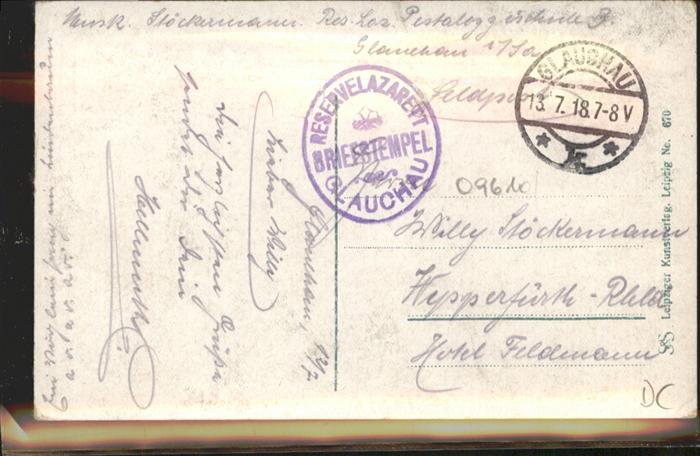 Musk. Stöckermann. Res. Laz. Pestalozzischule
Glauchau i/Sa
Feldpost
RESERVELAZARETT
BRIEFSTEMPEL
GLAUCHAU
GLAUCHAU
13. 7. 18. 7-8 V
09610
Willy Stöckermann
Wypperfürth - Rhld
Hotel Feldmann
Glauchau, 12/7
Lieber Willy
Die herzlichsten Grüße
sendet dir Dein
Hellmuth
Leipziger Kunstverlag. Leipzig No. 670
DC